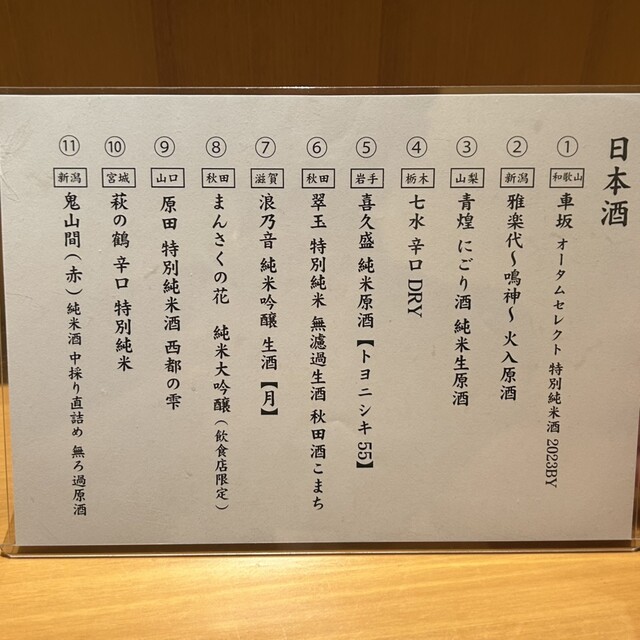 日本酒
① 和歌山 車坂 オータムセレクト 特別純米酒 2023BY
② 新潟 雅楽代～鳴神～ 火入原酒
③ 山梨 青煌 にごり酒 純米生原酒
④ 栃木 七水 辛口 DRY
⑤ 岩手 喜久盛 純米原酒【トヨニシキ55】
⑥ 秋田 翠玉 特別純米 無濾過生酒 秋田酒こまち
⑦ 滋賀 浪乃音 純米吟醸 生酒【月】
⑧ 秋田 まんさくの花 純米大吟醸（飲食店限定）
⑨ 山口 原田 特別純米酒 西都の雫
⑩ 宮城 萩の鶴 辛口 特別純米
⑪ 新潟 鬼山間（赤）純米酒 中採り直詰め 無ろ過原酒